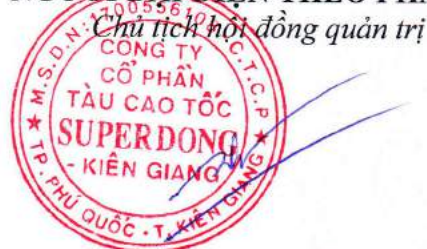 Chủ tịch hội đồng quản trị
CÔNG TY
CỔ PHẦN
TÀU CAO TỐC
SUPERDONG
- KIÊN GIANG
TP. PHÚ QUỐC - T. KIÊN GIANG